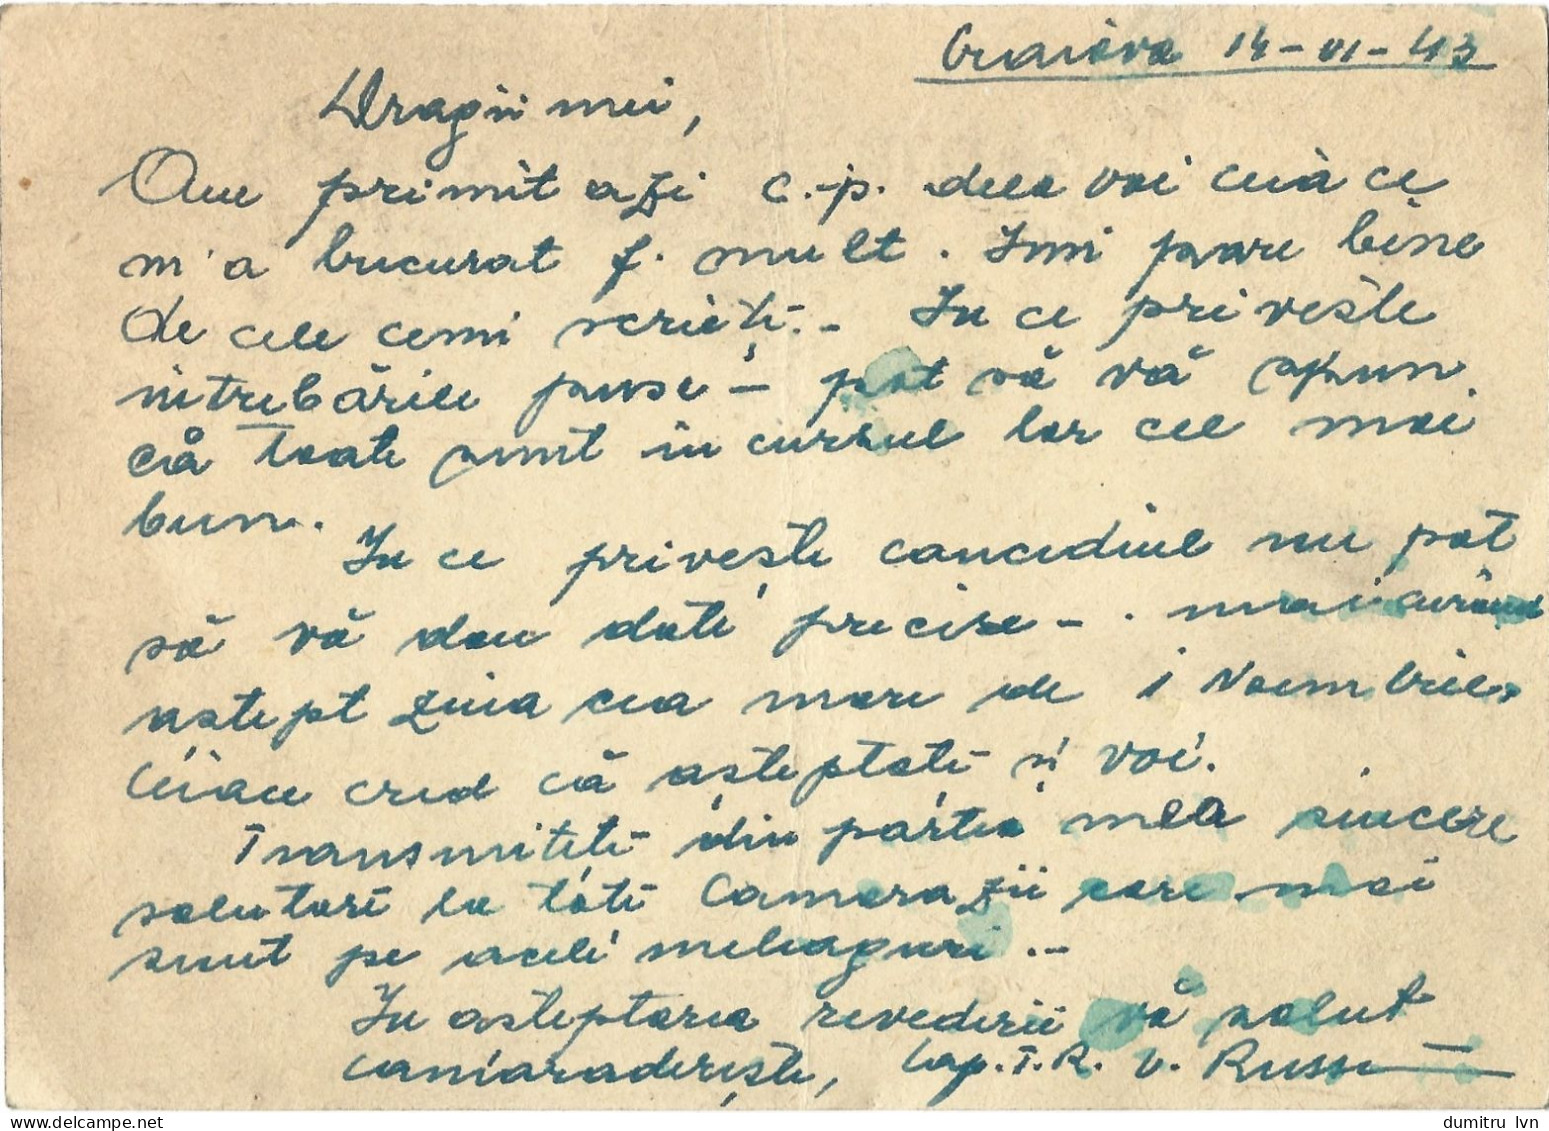 Craiova 14-VI-43
Dragii mei,
Am primit azi c.-p. dela voi ceia ce
m'a bucurat f. mult. Imi pare bine
de cele cemi scrieți.- In ce privește
intrebările puse - pot să vă spun
că toate sunt in cursul lor cel mai
bun.
In ce privește concediul nu pot
să vă dau date precise -. mai curând
astept ziua cea mare de 1 Noembrie,
ceiace cred că așteptati și voi.
Transmiteți din partea mea sincere
salutari la toti Camarazii care mai
sunt pe aceli meleaguri.-
In asteptarea revederii vă salut
camaraderește, Cap. T. R. V. Russu
dumitru lvn